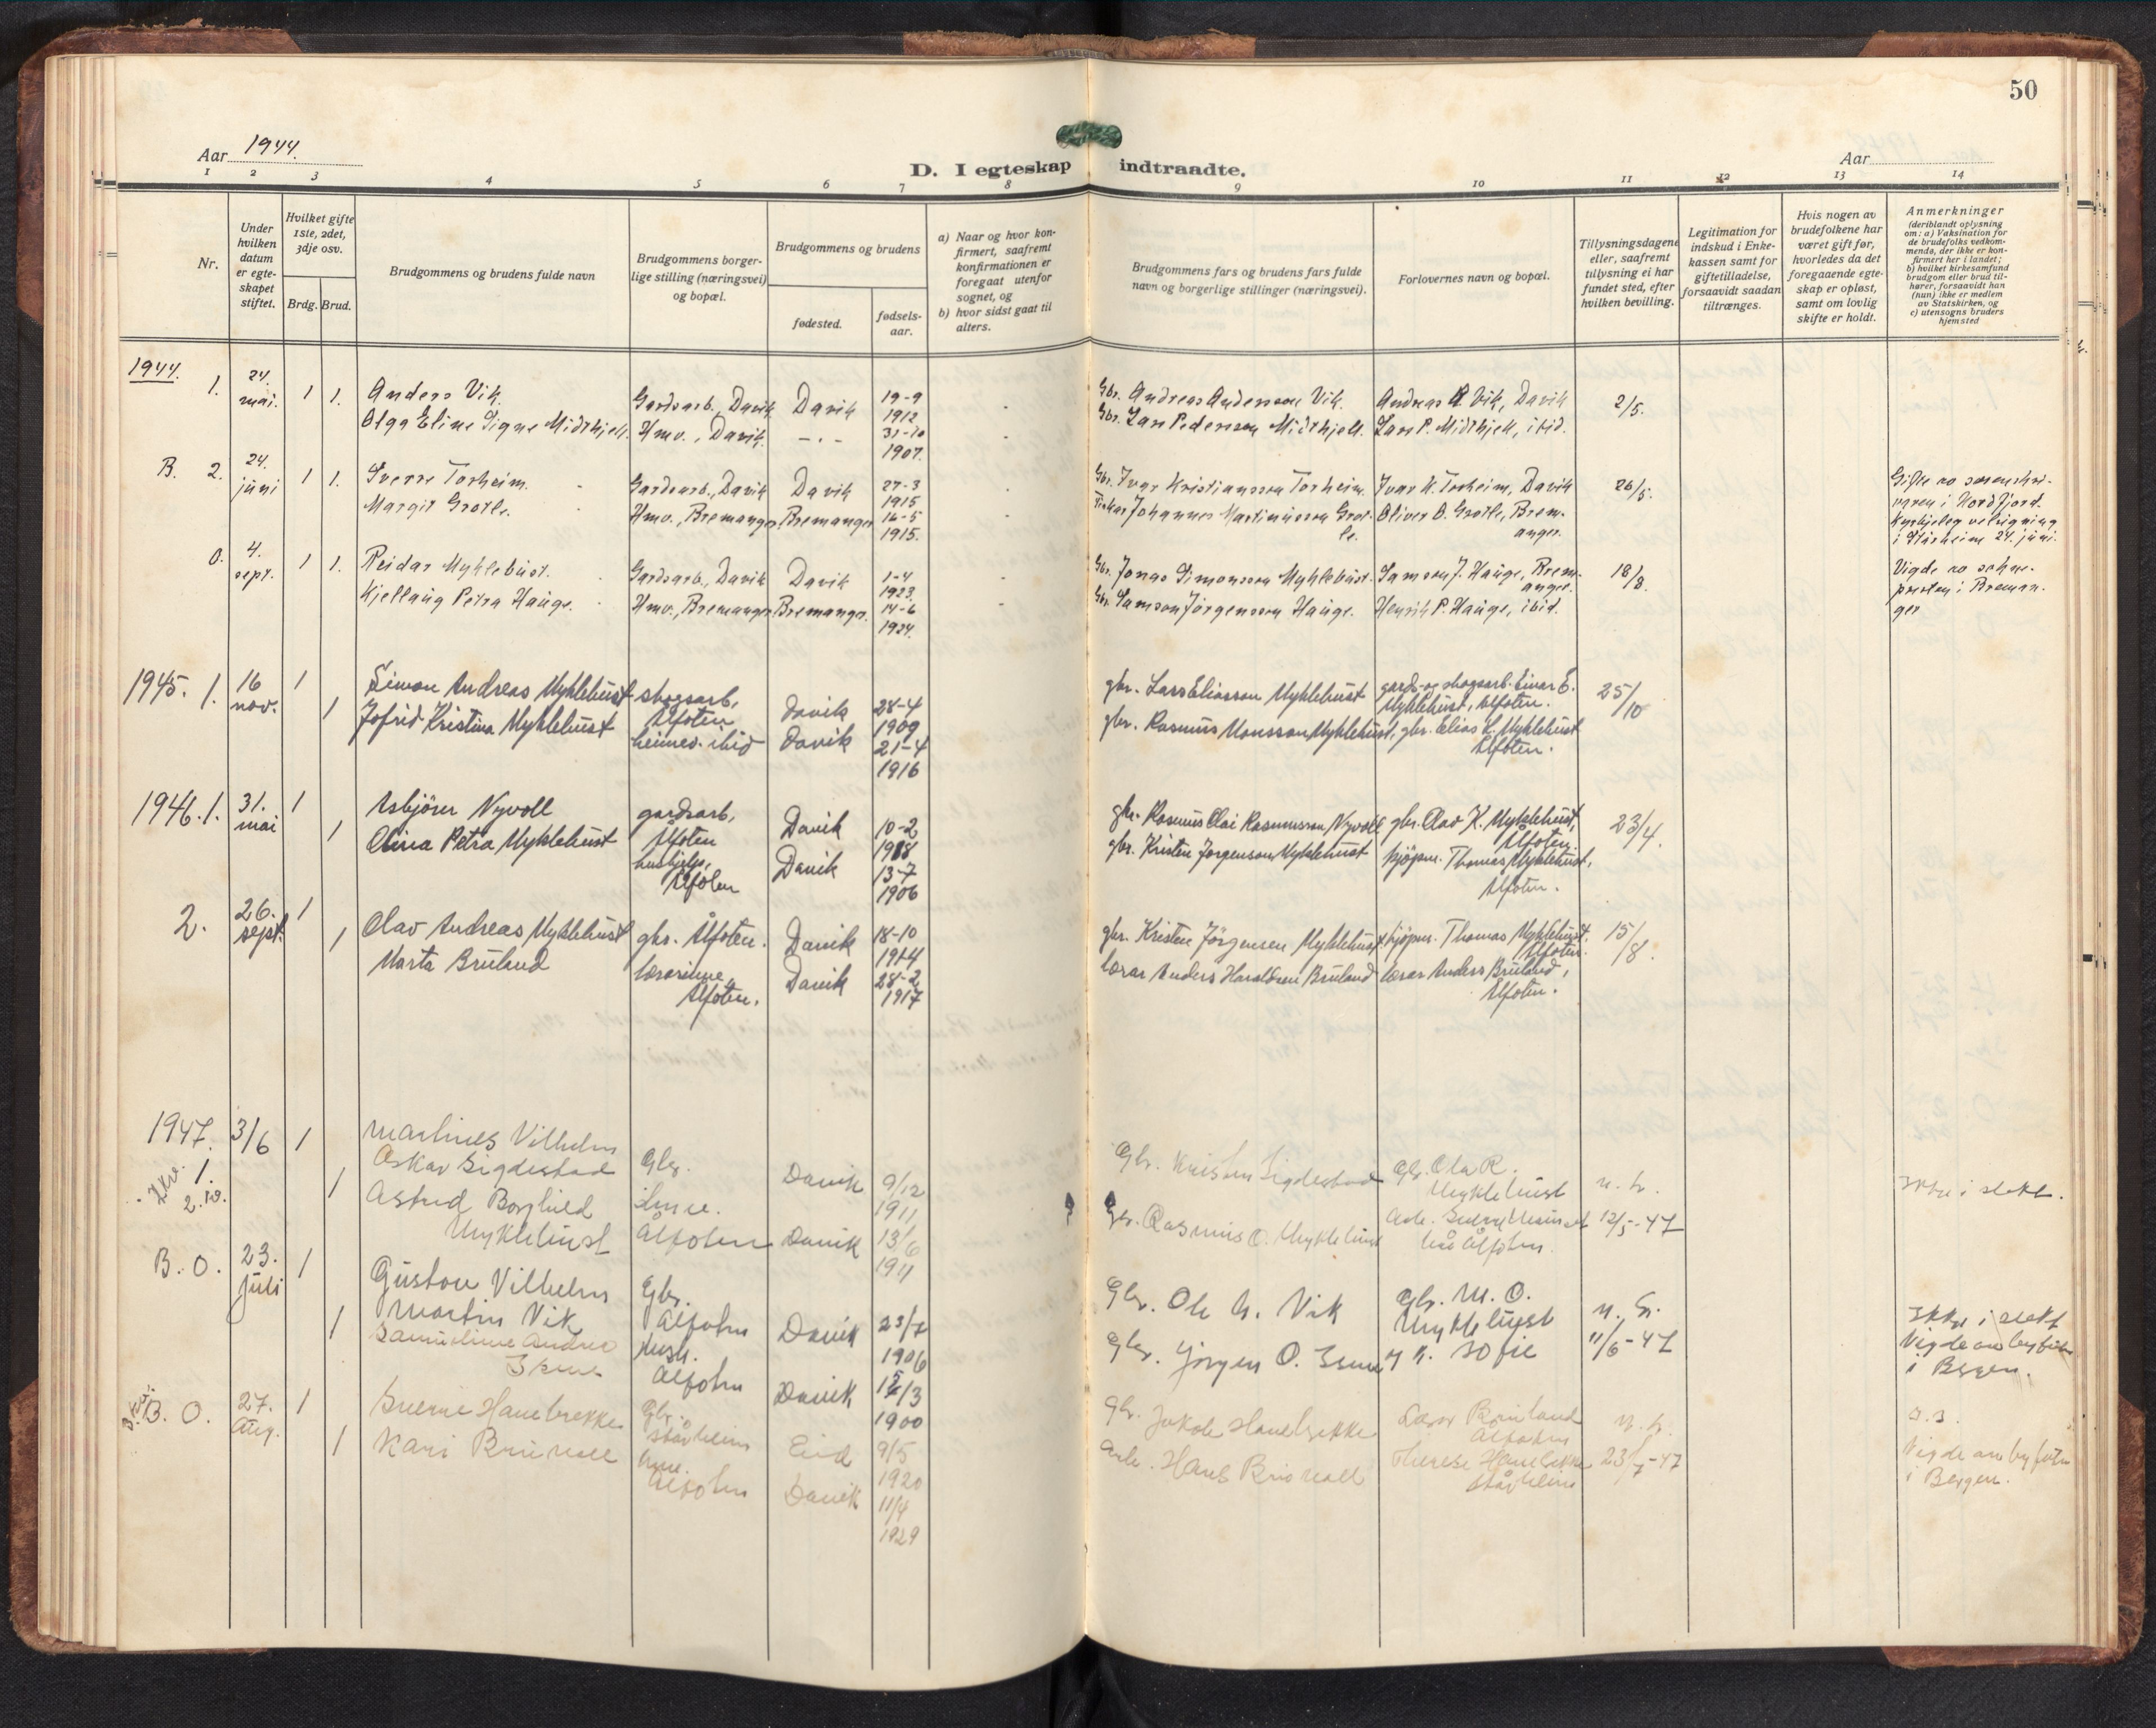 50
Aar 1944.
D. I egteskap indtraadte.
Aar
1 2 3 4 5 6 7 8 9 10 11 12 13 14
Nr.
Under hvilken datum er egteskapet stiftet.
Hvilket gifte 1ste, 2det, 3dje osv.
Brdg. Brud.
Brudgommens og brudens fulde navn
Brudgommens borgerlige stilling (næringsvei) og bopæl.
Brudgommens og brudens
fødested.
fødselsaar.
a) Naar og hvor konfirmert, saafremt konfirmationen er foregaat utenfor sognet, og
b) hvor sidst gaat til alters.
Brudgommens fars og brudens fars fulde navn og borgerlige stillinger (næringsvei).
Forlovernes navn og bopæl.
Tillysningsdagene eller, saafremt tillysning ei har fundet sted, efter hvilken bevilling.
Legitimation for indskud i Enkekassen samt for giftetilladelse, forsaavidt saadan tiltrænges.
Hvis nogen av brudefolkene har været gift før, hvorledes da det foregaaende egteskap er opløst, samt om lovlig skifte er holdt.
Anmerkninger
(deriblandt oplysning om: a) Vaksination for de brudefolks vedkommende, der ikke er konfirmert her i landet;
b) hvilket kirkesamfund brudgom eller brud tilhører, forsaavidt han (hun) ikke er medlem av Statskirken, og
c) utensogns bruders hjemsted
1944.
1. 24. mai. 1 1. Anders Vik. Gardsarb., Davik Davik 19-9 1912 Gbr. Andreas Anderson Vik. Andreas A Vik, Davik 2/5.
Olga Eline Signe Midthjell. Hmv., Davik. - . - 31-10 1907. Gbr. Lars Pederson Midthjell. Lars P. Midthjell, ibid.
B. 2. 24. juni 1 1. Sverre Torheim. Gardsarb., Davik Davik 27-3 1915 Gbr. Ivar Kristiansson Torheim. Ivar K. Torheim, Davik 26/5. Gifte av sorenskrivaren i Nordfjord. Kyrkjeleg velsigning i Stårheim 24. juni.
Margit Grotle. Hmv., Bremanger Bremanger 16-5 1915. Fiskar Johannes Martinusson Grotle. Oliver O. Grotle, Bremanger.
0. 4. sept. 1 1. Reidar Myklebust. Gardsarb., Davik Davik 1-4 1923. Gbr. Jonas Simonsson Myklebust. Samson J. Hauge, Bremanger. 18/8. Vigde av soknepresten i Bremanger
Kjellaug Petra Hauge. Hmv., Bremanger Bremanger. 14-6 1924. Gbr. Samson Jörgensson Hauge. Henrik P. Hauge, ibid.
1945. 1. 16 nov. 1 Simon Andreas Myklebust skogsarb, Ålfoten Davik 28-4 1909 gbr. Lars Eliasson Myklebust gards- og skogsarb. Einar E. Myklebust, Ålfoten. 25/10
1 Jofrid Kristina Myklebust heimev. ibid Davik 21-4 1916 gbr. Rasmus Monsson Myklebust, gbr. Elias L. Myklebust Ålfoten.
1946. 1. 31. mai 1 Asbjörn Nyvoll gardsarb, Ålfoten Davik 10-2 1918 gbr. Rasmus Olai Rasmusson Nyvoll gbr. Olav K. Myklebust, Ålfoten. 23/4.
1 Olina Petra Myklebust hushjelp, Ålfoten Davik 13-7 1906 gbr. Kristen Jørgenson Myklebust kjøpm. Thomas Myklebust, Ålfoten.
2. 26. sept. 1 Olav Andreas Myklebust gbr. Ålfoten. Davik 18-10 1914 gbr. Kristen Jörgensen Myklebust kjöpm. Thomas Myklebust, Ålfoten. 15/8.
1 Marta Bruland lærarinne, Ålfoten. Davik 28-2 1917 lærar Anders Haraldsen Bruland lærar Anders Bruland, Ålfoten.
1947. 1. 3/6 1 Martines Vilhelm Oskar Sigdestad Gbr. Davik 9/12 1911 Gbr. Kristen Sigdestad Gbr. Ola R. Myklebust Ikke i slekt.
1 Astrid Borghild Myklebust Ålfoten Davik 13/6 1911 Gbr. Rasmus O. Myklebust Ålfoten. 12/5-47
B. O. 23. juli 1 Gustav Vilhelm Martin Vik Gbr. Ålfoten Davik 23/7 1906 Gbr. Ole N. Vik Gbr. M. O. Myklebust 11/6-47 Ikke i slekt Vigde av byfut i Bergen.
1 Ålfoten Davik 1900 Gbr. Jørgen O.
B. O. 27. Aug. 1 Sverre Hanebrekke Gbr. Stårheim Eid 9/5 1920 Gbr. Jakob Hanebrekke Lærar Bruland Ålfoten 23/7-47 Vigde av byfuten i Bergen.
1 Kari Ålfoten Davik 11/4 1929 Arb. Hans Therese Hanebrekke Stårheim